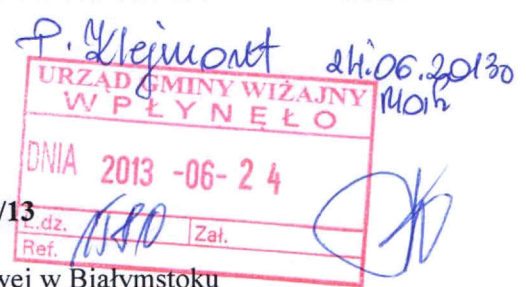 P. Klejmont 24.06.2013
URZĄD GMINY WIŻAJNY
WPŁYNĘŁO
DNIA 2013 -06- 24
/13
L.dz. Zał.
Ref.
wej w Białymstoku